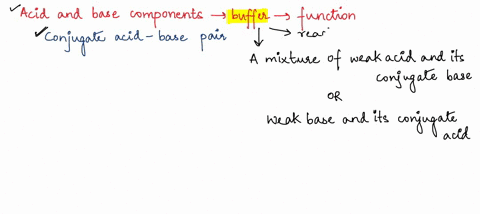 ✓Acid and base components → buffer → function
✓Conjugate acid-base pair
↓ → reac
A mixture of weak acid and its
conjugate base
OR
weak base and its conjugate
acid